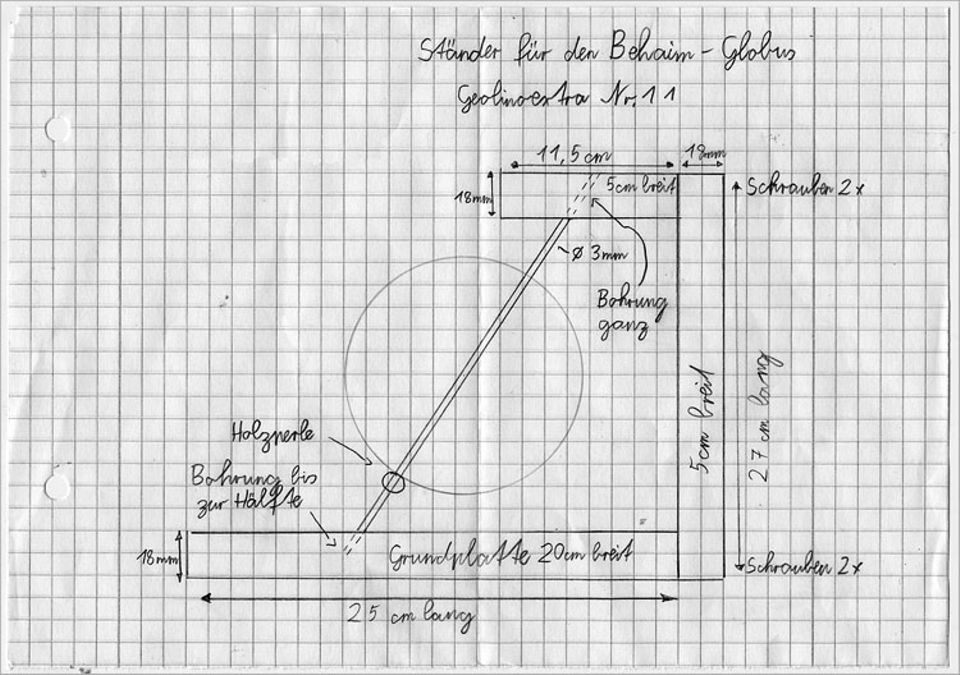 Ständer für den Behaim - Globus
Geolinoextra Nr. 11
11,5 cm
18mm
18mm
5cm breit
Schrauben 2x
ø 3mm
Bohrung
ganz
5cm breit
27 cm lang
Holzperle
Bohrung bis
zur Hälfte
18mm
Grundplatte 20cm breit
Schrauben 2x
25 cm lang